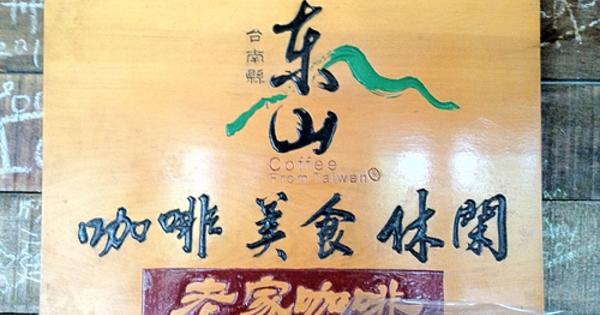 台南縣
东山
Coffee
From Taiwan
咖啡 美食 休閑
老家咖啡